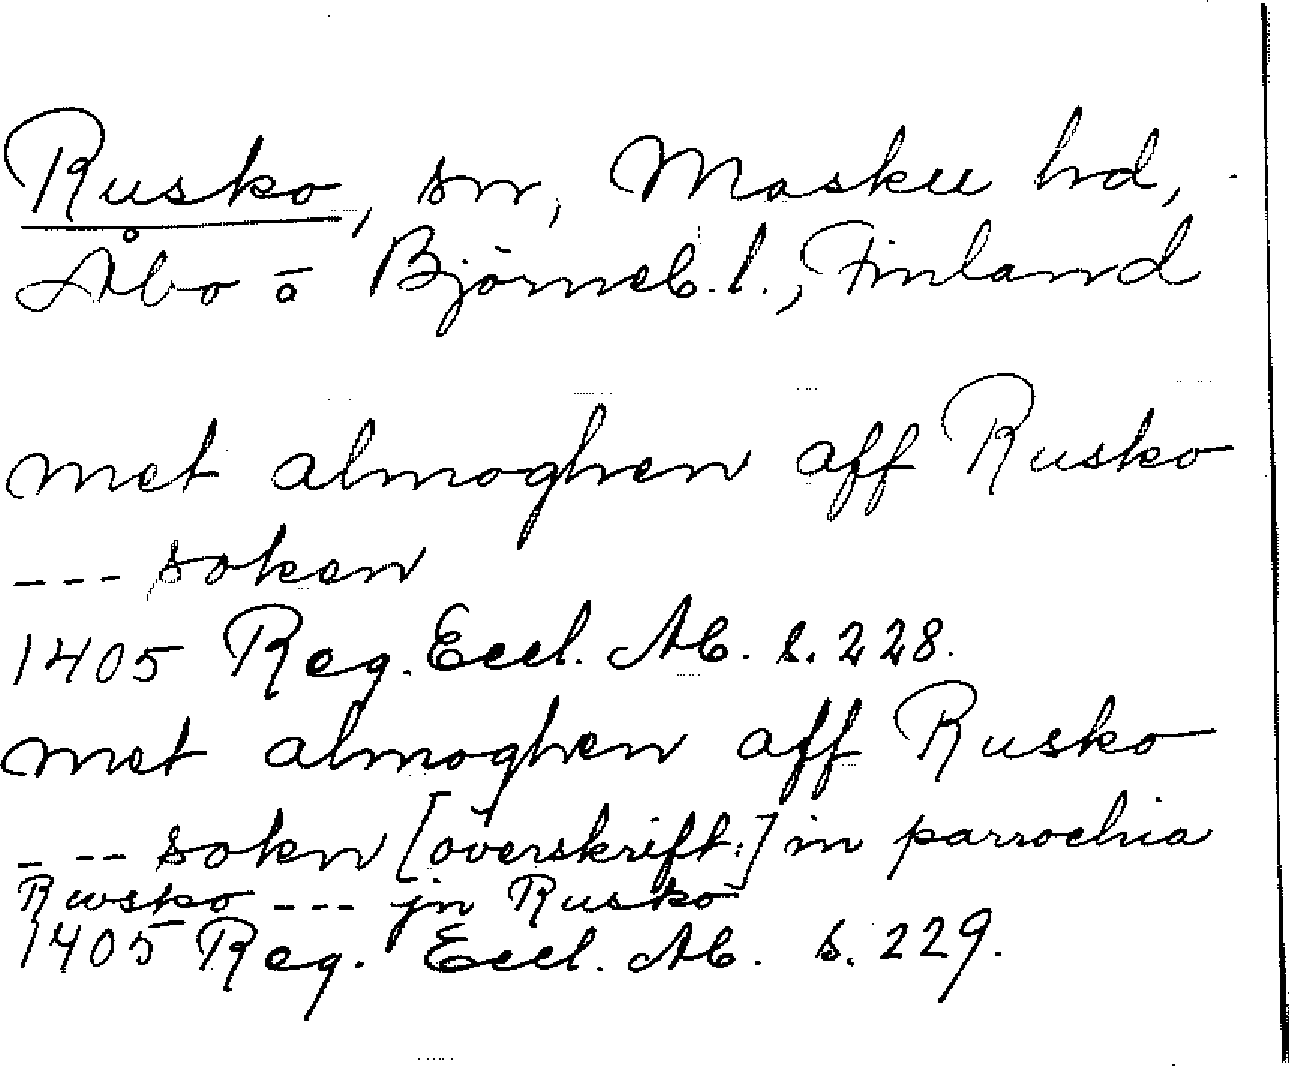 Rusko, sn, Masku hd,
Åbo o Björneb. l., Finland
met almoghen aff Rusko
--- soken
1405 Reg. Eccl. Ab. s. 228.
met almoghen aff Rusko
--- sokn [överskrift:] in parrochia
Rwsko --- jn Rusko
1405 Reg. Eccl. Ab. s. 229.